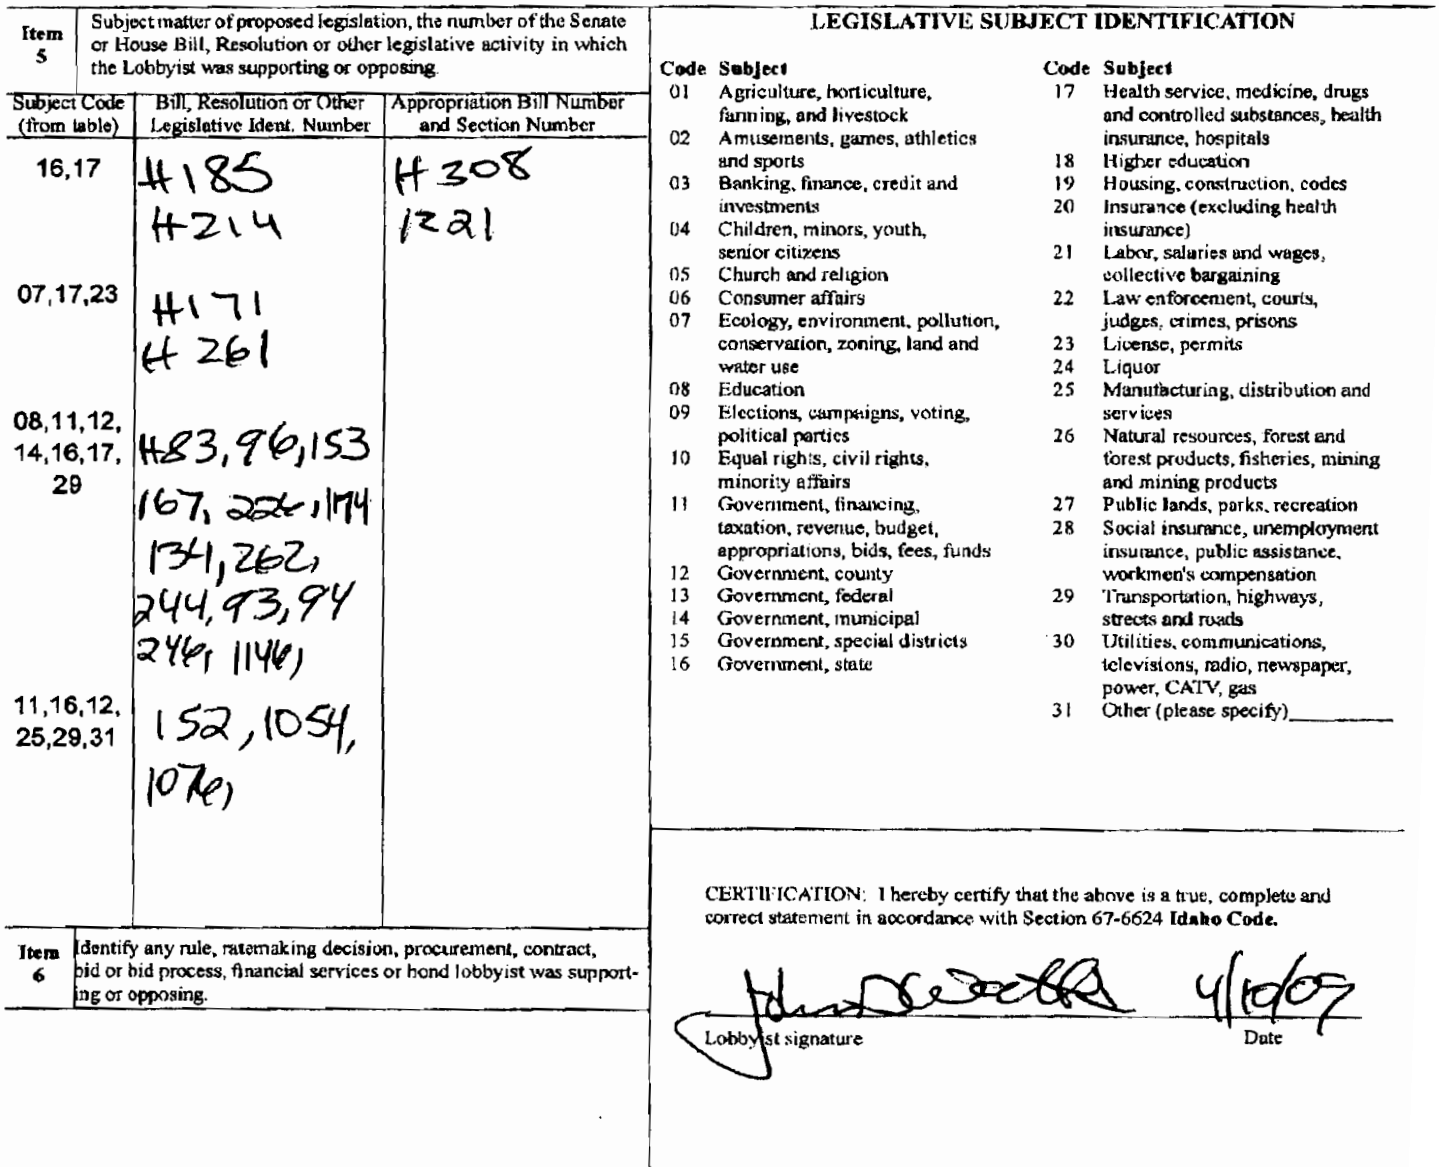 Item
5
Subject matter of proposed legislation, the number of the Senate
or House Bill, Resolution or other legislative activity in which
the Lobbyist was supporting or opposing.
Subject Code
(from table)
Bill, Resolution or Other
Legislative Ident. Number
Appropriation Bill Number
and Section Number
16,17
H185
H308
H214
1221
07,17,23
H171
H 261
08,11,12,
14,16,17,
29
H83, 96, 153
167, 226, 1174
134, 262,
244, 93, 94
246, 1146,
11,16,12,
25,29,31
152, 1054,
1076,
Item
6
Identify any rule, ratemaking decision, procurement, contract,
bid or bid process, financial services or bond lobbyist was support-
ing or opposing.
LEGISLATIVE SUBJECT IDENTIFICATION
Code Subject
01 Agriculture, horticulture,
farming, and livestock
02 Amusements, games, athletics
and sports
03 Banking, finance, credit and
investments
04 Children, minors, youth,
senior citizens
05 Church and religion
06 Consumer affairs
07 Ecology, environment, pollution,
conservation, zoning, land and
water use
08 Education
09 Elections, campaigns, voting,
political parties
10 Equal rights, civil rights,
minority affairs
11 Government, financing,
taxation, revenue, budget,
appropriations, bids, fees, funds
12 Government, county
13 Government, federal
14 Government, municipal
15 Government, special districts
16 Government, state
Code Subject
17 Health service, medicine, drugs
and controlled substances, health
insurance, hospitals
18 Higher education
19 Housing, construction, codes
20 Insurance (excluding health
insurance)
21 Labor, salaries and wages,
collective bargaining
22 Law enforcement, courts,
judges, crimes, prisons
23 License, permits
24 Liquor
25 Manufacturing, distribution and
services
26 Natural resources, forest and
forest products, fisheries, mining
and mining products
27 Public lands, parks, recreation
28 Social insurance, unemployment
insurance, public assistance,
workmen's compensation
29 Transportation, highways,
streets and roads
30 Utilities, communications,
televisions, radio, newspaper,
power, CATV, gas
31 Other (please specify)
CERTIFICATION: I hereby certify that the above is a true, complete and
correct statement in accordance with Section 67-6624 Idaho Code.
4/10/09
Lobbyist signature
Date